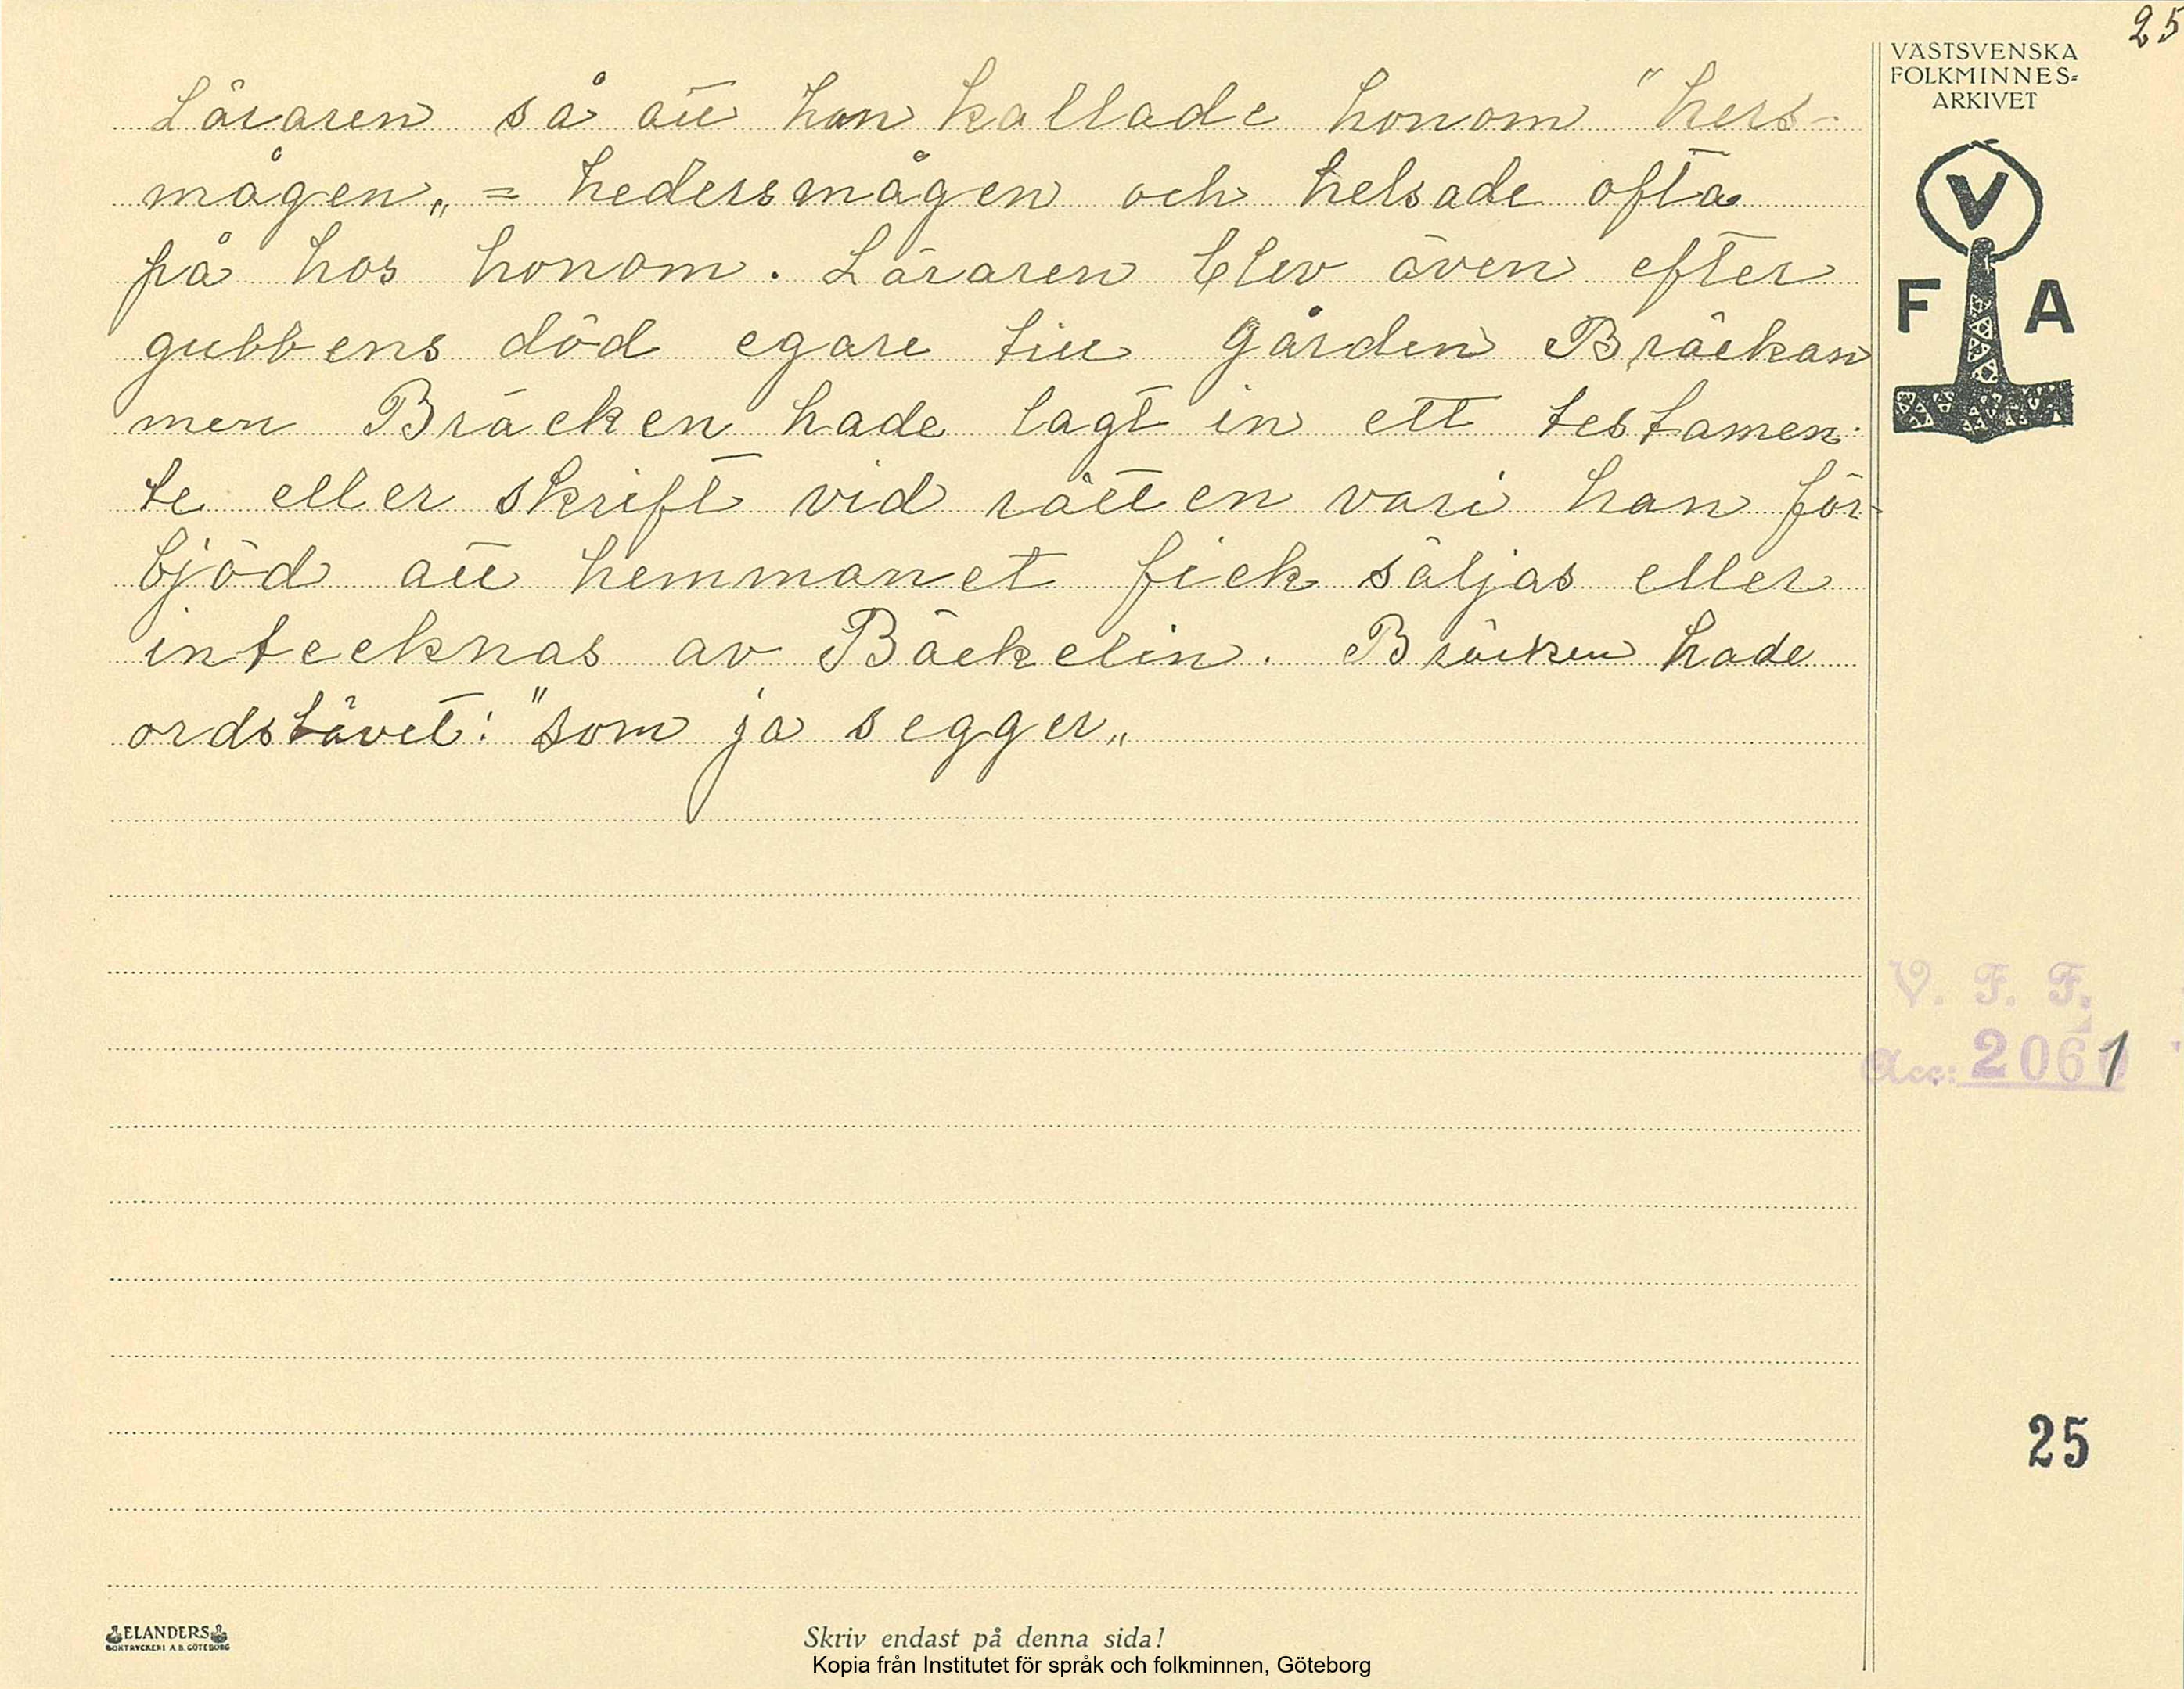 25
VÄSTSVENSKA
FOLKMINNES=
ARKIVET
Läraren så att han kallade honom "hers-
mågen„ = hedersmågen och helsade ofta
på hos honom. Läraren blev även efter
gubbens död egare till gården Bräckan
men Bräcken hade lagt in ett testamen-
te eller skrift vid rätten vari han för-
bjöd att hemmanet fick säljas eller
intecknas av Bäckelin. Bräcken hade
ordstävet: "som ja segger„
V
F A
V. F. F.
Acc: 2061
25
ELANDERS
BOKTRYCKERI A.B. GÖTEBORG
Skriv endast på denna sida!
Kopia från Institutet för språk och folkminnen, Göteborg